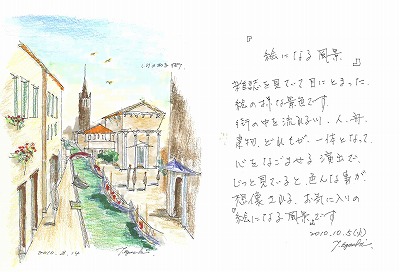 『
絵になる風景
』
雑誌を見ていて目にとまった、
絵の様な景色です。
街の中を流れる川、人、舟、
建物、どれもが、一体となって、
心をなごませる演出で、
じっと見ていると、色んな事が
想像される、お気に入りの
『絵になる風景』です
2010.10.5(火)